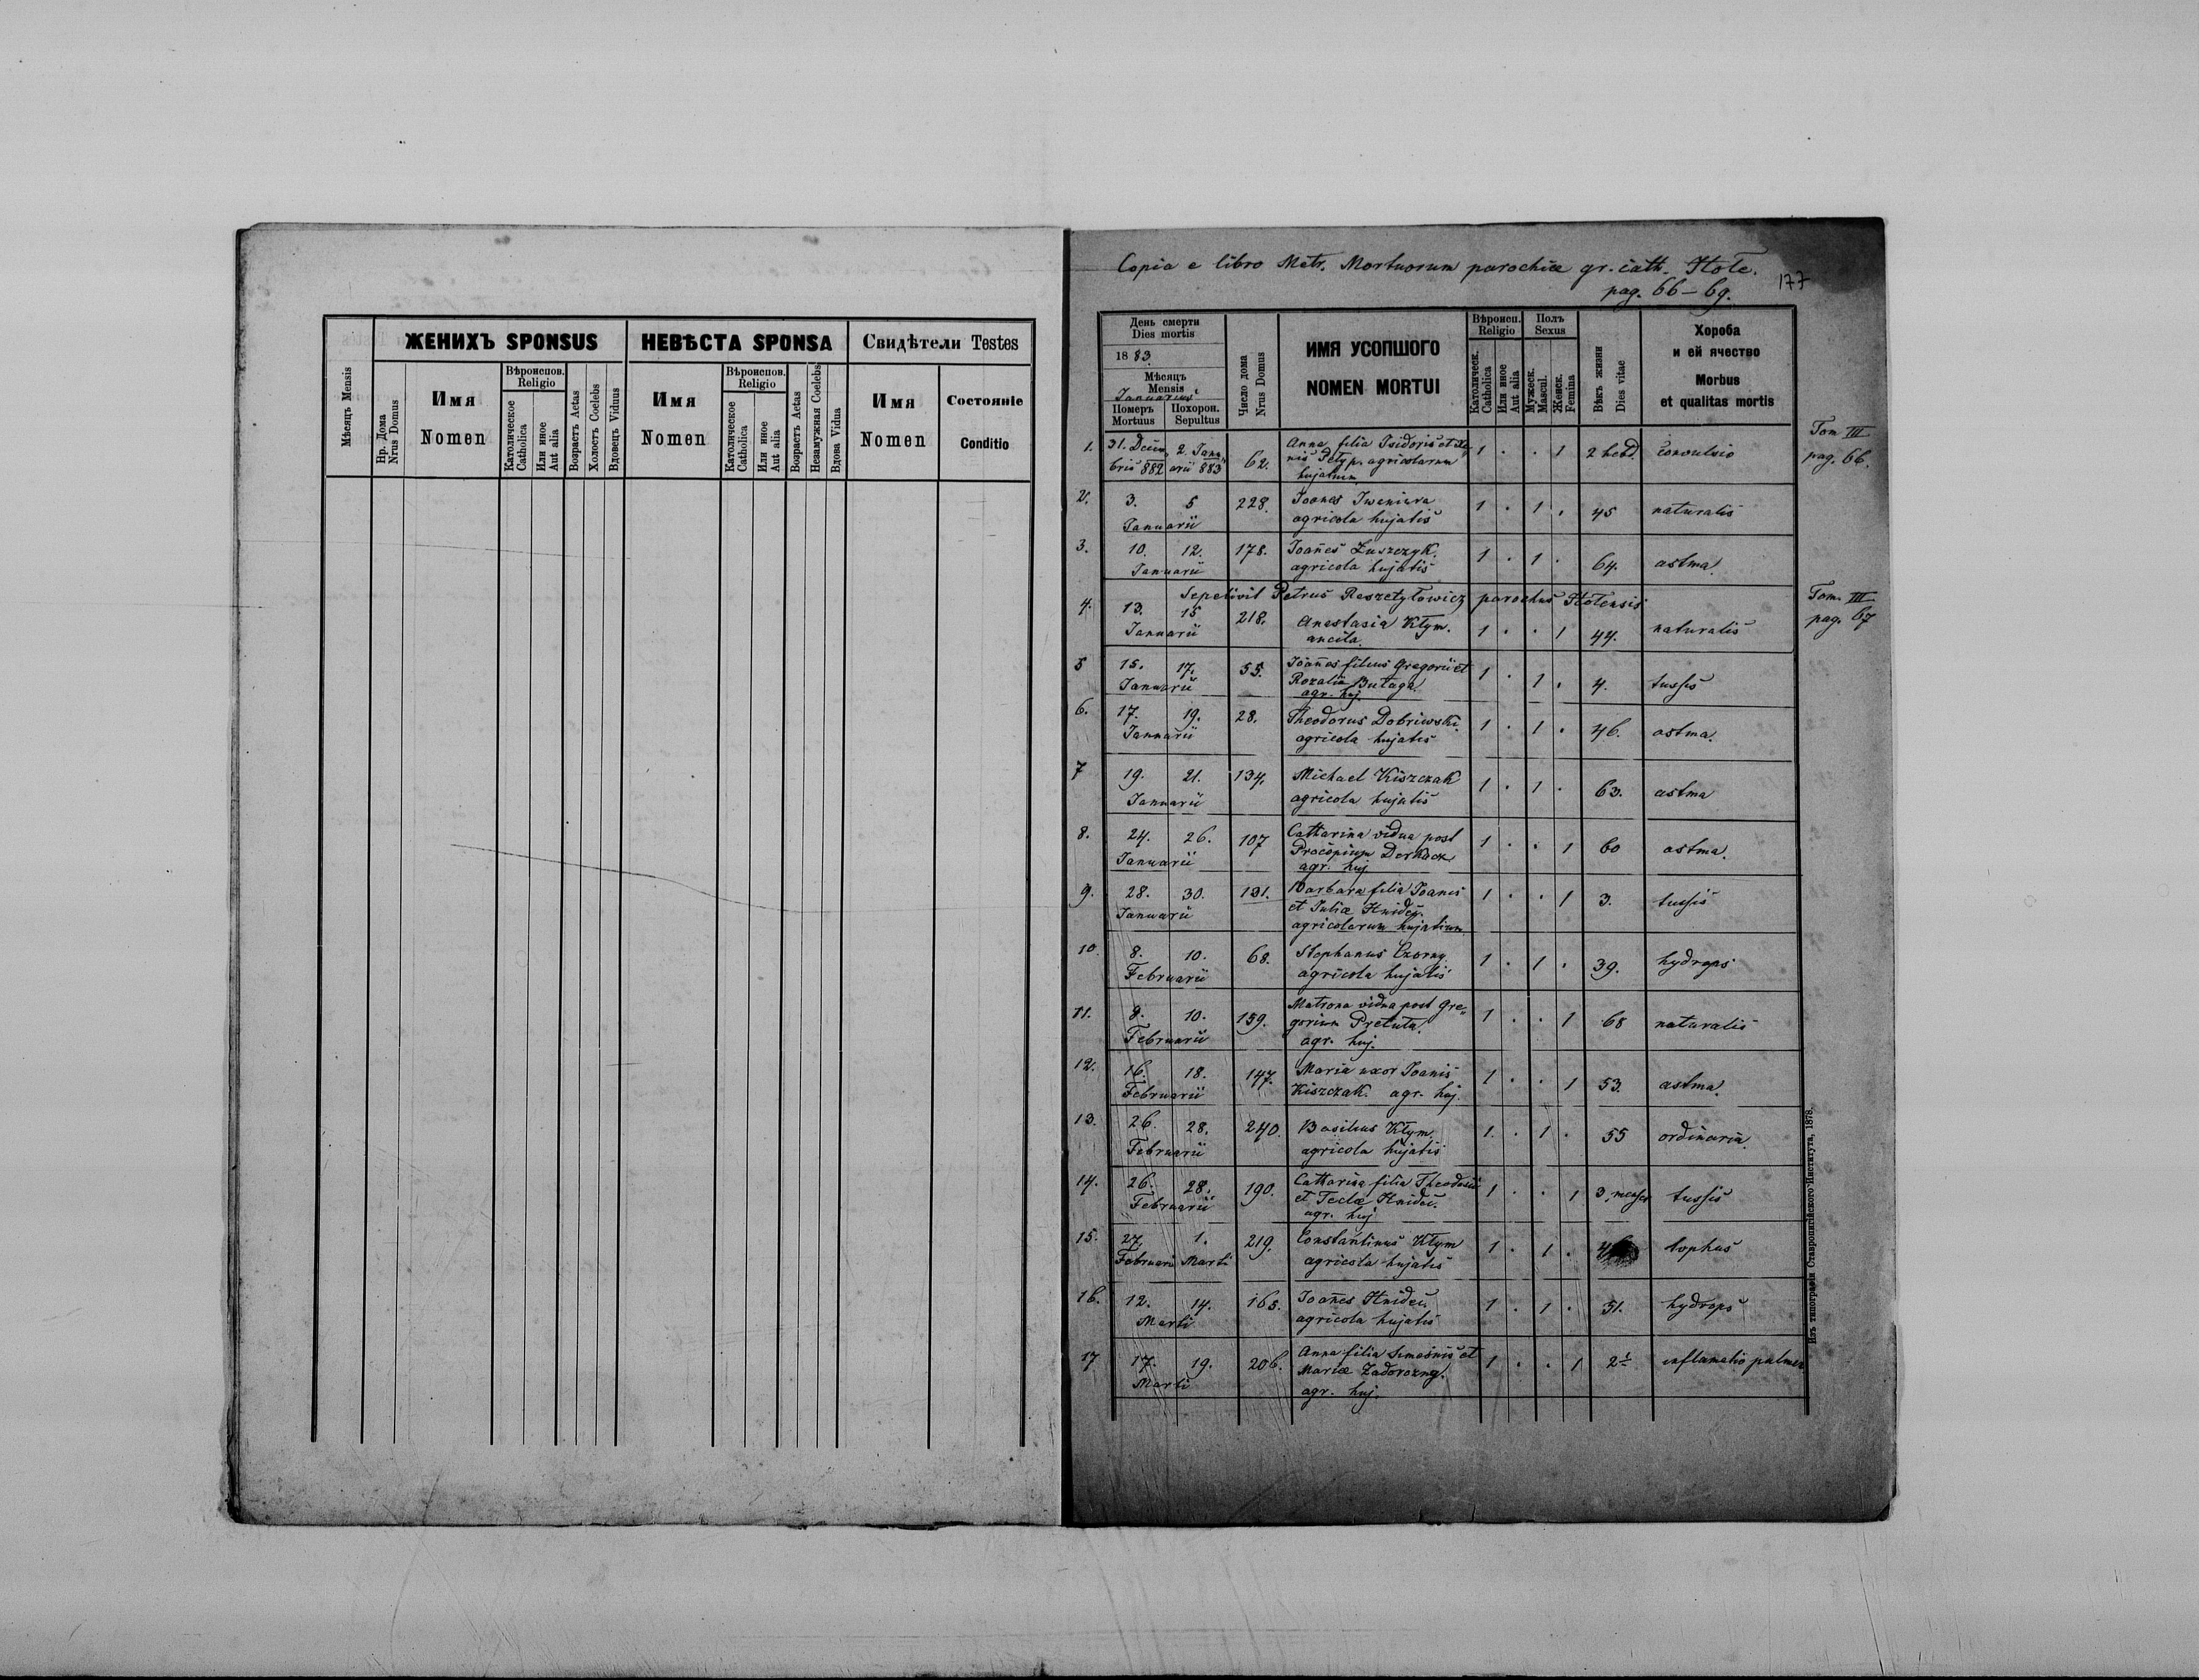 ЖЕНИХЪ SPONSUS
НЕВѢСТА SPONSA
Свидѣтели Testes
Мѣсяцъ Mensis
Нр. Дома
Nrus Domus
Имя
Nomen
Вѣроиспов.
Religio
Католическое
Catholica
Или иное
Aut alia
Возрастъ Aetas
Холостъ Coelebs
Вдовецъ Viduus
Имя
Nomen
Вѣроиспов.
Religio
Католическое
Catholica
Или иное
Aut alia
Возрастъ Aetas
Незамужная Coelebs
Вдова Vidua
Имя
Nomen
Состоянiе
Conditio
Copia e libro Metr. Mortuorum parochiæ gr. cath.
pag. 66-69.
177
День смерти
Dies mortis
1883.
Мѣсяцъ
Mensis
Januarius
Померъ
Mortuus
Похорон.
Sepultus
Число дома
Nrus Domus
ИМЯ УСОПШОГО
NOMEN MORTUI
Вѣроисп.
Religio
Католическ.
Catholica
Или иное
Aut alia
Полъ
Sexus
Мужеск.
Mascul.
Женск.
Femina
Вѣкъ жизни
Dies vitae
Хороба
и ей ячество
Morbus
et qualitas mortis
Tom III
pag. 66.
1. 31. Decem 2. Janu 62. Anna filia Isidoris et
bris 882 arii 883 agricolarum 1 . . 1 2 hebd. convulsio
hujatium
2. 3. 5 228. Joanes
Januarii agricola hujatis 1 . 1 . 45 naturalis
3. 10. 12. 178. Joañes Łuszczyk.
Januarii agricola hujatis 1 . 1 . 64. astma.
Sepelivit Petrus Reszetyłowicz parochus
Tom. III
pag. 67
4. 13. 15 218. Anastasia Kłym.
Januarii ancila 1 . . 1 44. naturalis
5 15. 17. 55. Joañes filius Gregorii et
Januarii Rozaliæ Bułaga. 1 . 1 . 4. tussis
agr. huj.
6. 17. 19. 28. Theodorus Dobriwski.
Januarii agricola hujatis 1 . 1 . 46. astma.
7 19. 21. 134. Michael Kiszczak
Januarii agricola hujatis 1 . 1 . 63. astma
8. 24. 26. 107 Catharina vidua post
Januarii Procopium Derkacz 1 . . 1 60 astma.
agr. huj
9. 28. 30. 131. Barbara filia Joanis
Januarii et Juliæ Hnideć. 1 . . 1 3. tussis
agricolarum hujatium
10. 8. 10. 68. Stephanus Czorny
Februarii agricola hujatis 1 . 1 . 39. hydrops
11. 8. 10. 159. Matrona vidua post Gre„
gorium Pretuła. 1 . . 1 68 naturalis
Februarii agr. huj.
12. 16. 18. 147. Maria uxor Joanis
Februarii Kiszczak. agr. huj. 1 . . 1 53. astma.
13. 26. 28. 240. Basilius Kłym
Februarii agricola hujatis 1. . 1 . 55 ordinaria
14. 26. 28. 190. Catharina filia Theodosii
Februarii et Teclæ Hnideć. 1 . . 1 3 menses tussis
agr. huj
15. 27. 1. 219. Constantinus Kłym
Februarii Martii agricola hujatis 1 . 1 . tophus
16. 12. 14. 165. Joañes Hnideć.
Martii agricola hujatis 1 . 1 . 51. hydrops
17 17. 19. 206. Anna filia Simeonis et
Martii Mariæ Zadorozny. 1 . . 1 2½ inflamatio pulmon
agr. huj.
Изъ типографіи Ставропигійского Института, 1878.